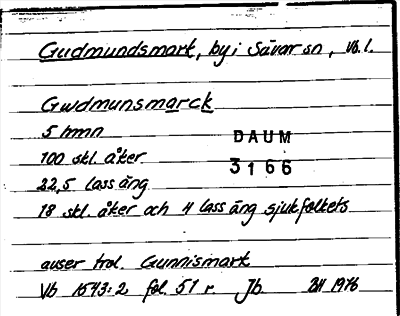 Gudmundsmark, by i Sävar sn, Vb. l.
Gwdmunsmarck
5 hmn
DAUM
100 skl. åker
3166
22,5 lass äng
18 skl. åker och 4 lass äng sjukfolkets
avser trol. Gunnismark
Vb 1543:2 fol. 51 r. Jb. BH 1976